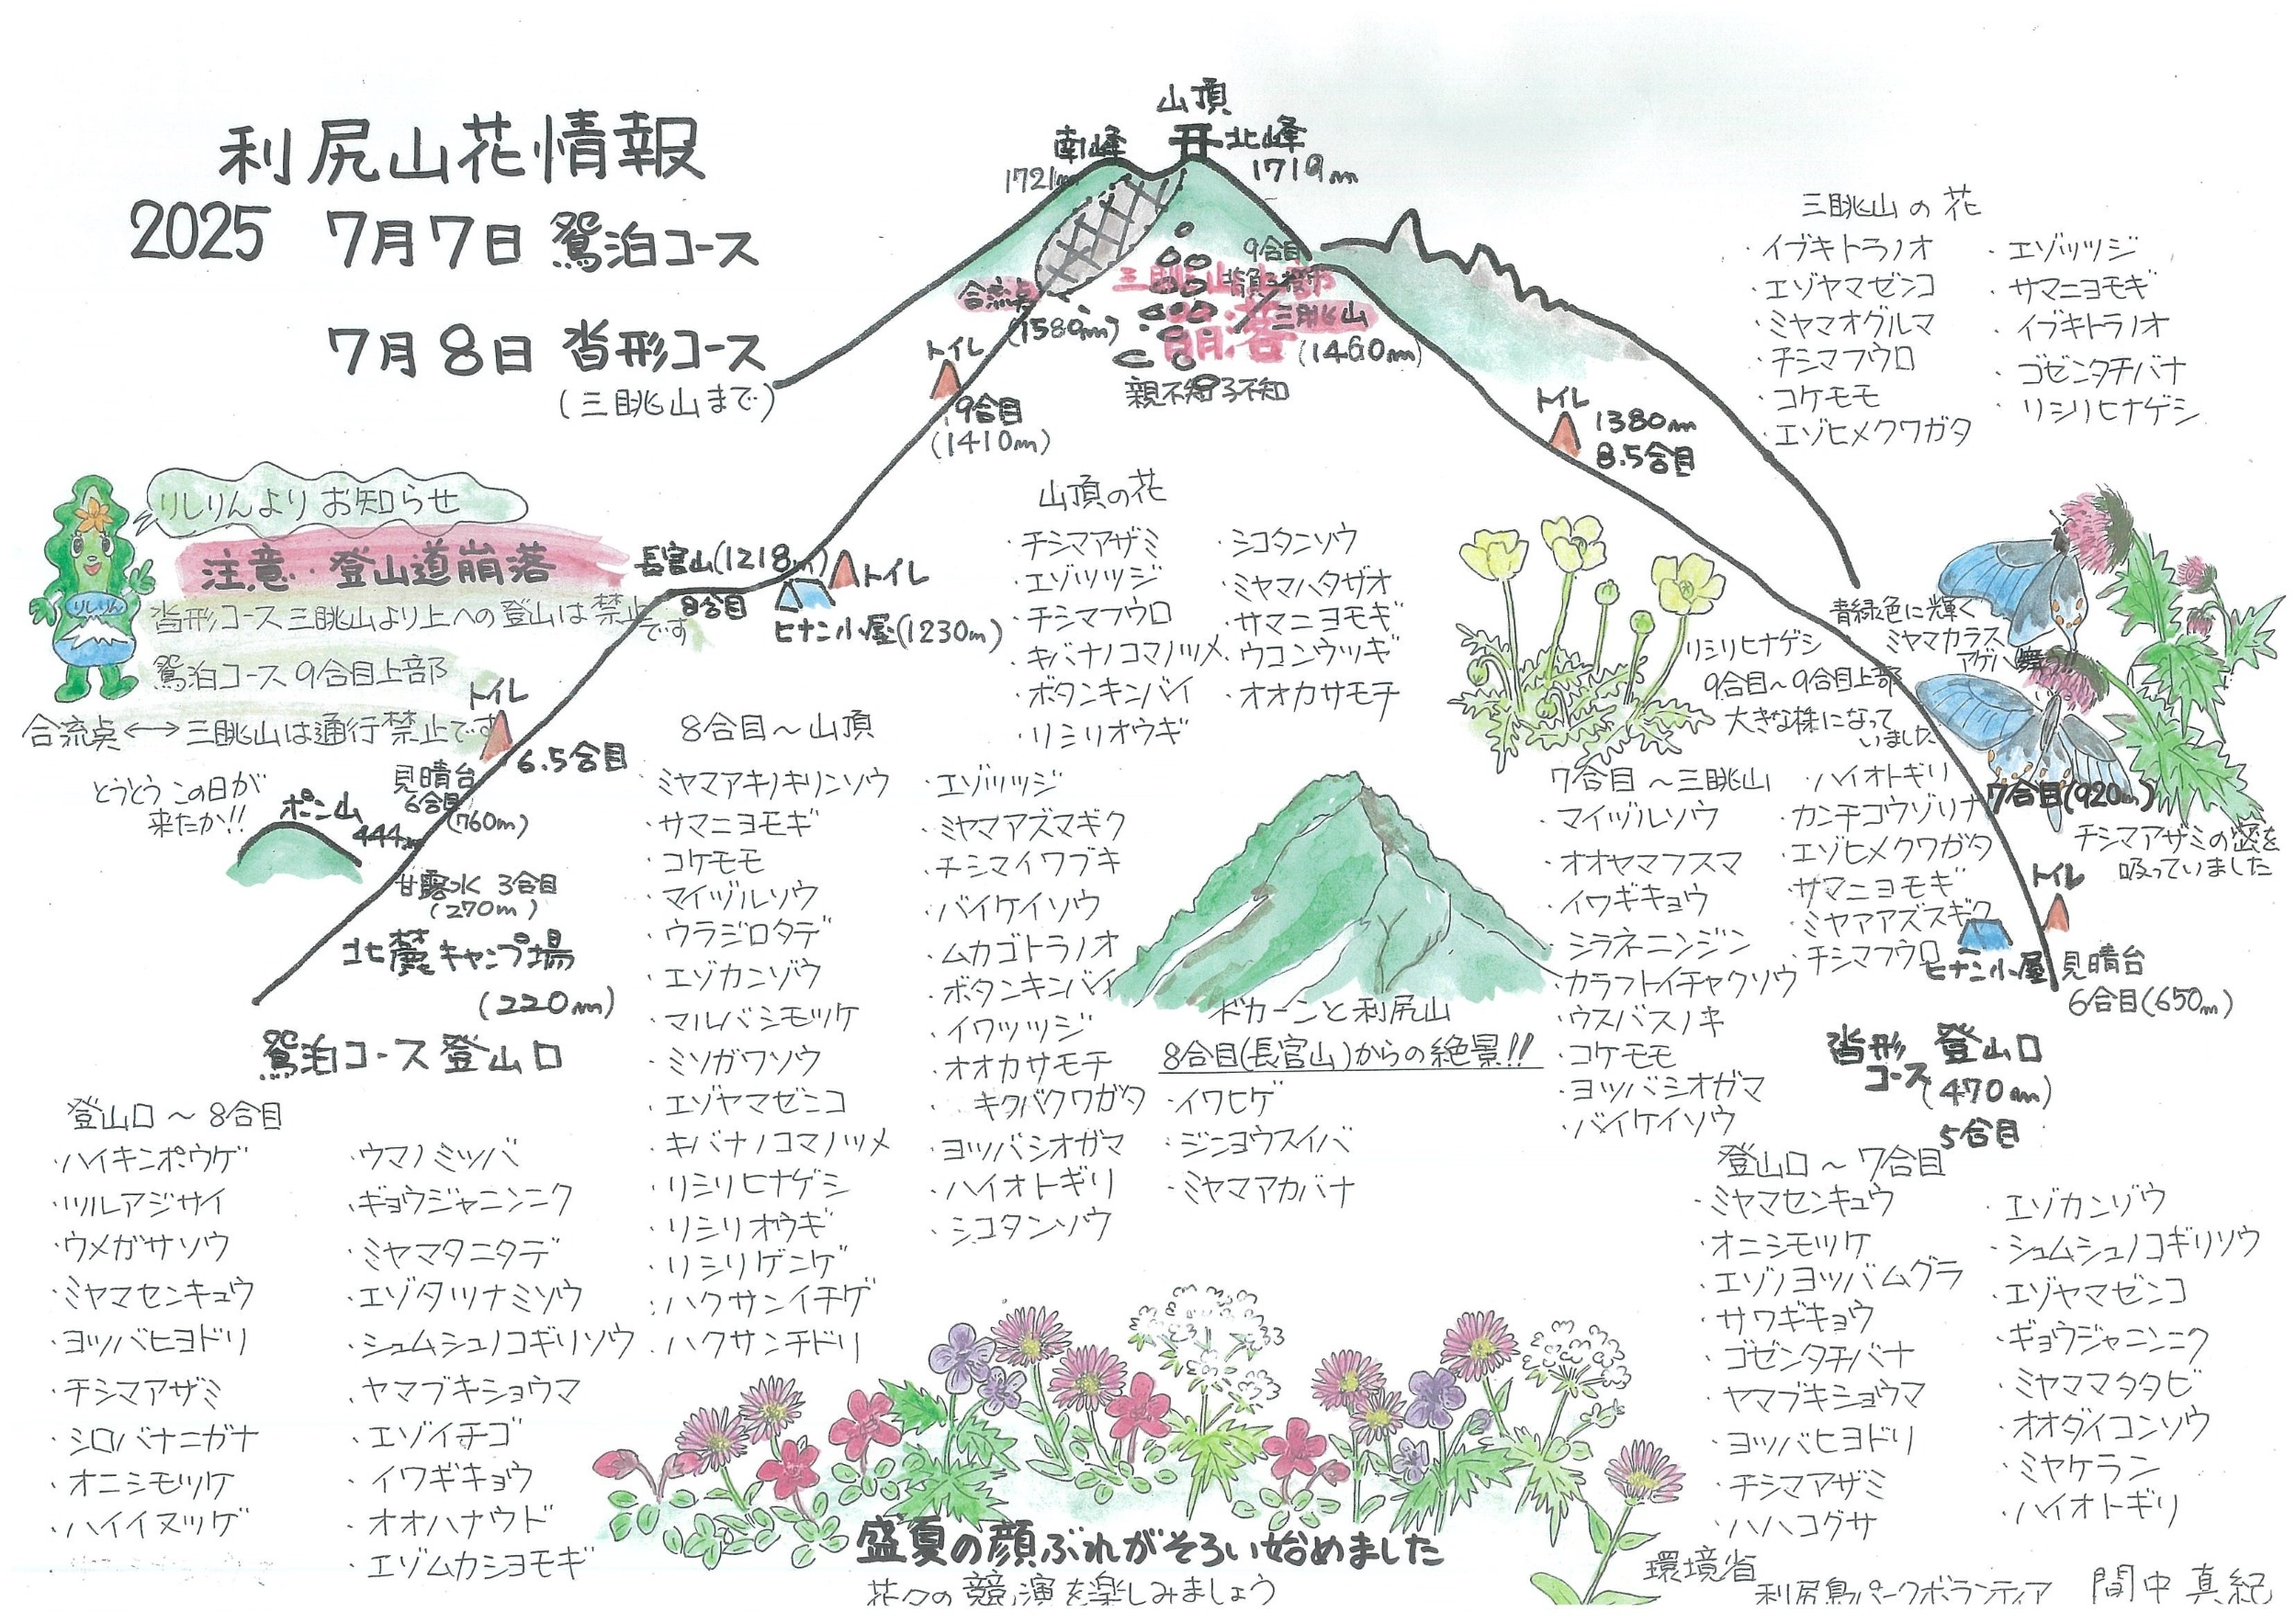 利尻山花情報
2025 7月7日 鴛泊コース
7月8日 沓形コース
(三眺山まで)
山頂
南峰
1721m
北峰
1719m
9合目
三眺山上部
崩落
合流点
(1580m)
三眺山
(1460m)
親不知子不知
トイレ
9合目
(1410m)
トイレ
1380m
8.5合目
三眺山の花
・イブキトラノオ
・エゾヤマゼンコ
・ミヤマオグルマ
・チシマフウロ
・コケモモ
・エゾヒメクワガタ
・エゾツツジ
・サマニヨモギ
・イブキトラノオ
・ゴゼンタチバナ
・リシリヒナゲシ
りしりんよりお知らせ
注意・登山道崩落
りしりん
沓形コース三眺山より上への登山は禁止です
鴛泊コース9合目上部
合流点←→三眺山は通行禁止です
とうとうこの日が
来たか!!
長官山(1218m)
8合目
トイレ
ヒナン小屋(1230m)
トイレ
6.5合目
見晴台
6合目
(760m)
ポン山
444m
甘露水 3合目
(270m)
北麓キャンプ場
(220m)
鴛泊コース登山口
山頂の花
・チシマアザミ
・エゾツツジ
・チシマフウロ
・キバナノコマノツメ
・ボタンキンバイ
・リシリオウギ
・シコタンソウ
・ミヤマハタザオ
・サマニヨモギ
・ウコンウツギ
・オオカサモチ
リシリヒナゲシ
9合目~9合目上部
大きな株になって
いました
青緑色に輝く
ミヤマカラス
アゲハ舞う!!
チシマアザミの蜜を
吸っていました
7合目(920m)
トイレ
ヒナン小屋
見晴台
6合目(650m)
沓形コース 登山口
(470m)
5合目
8合目~山頂
・ミヤマアキノキリンソウ
・サマニヨモギ
・コケモモ
・マイヅルソウ
・ウラジロタデ
・エゾカンゾウ
・マルバシモツケ
・ミソガワソウ
・エゾヤマゼンコ
・キバナノコマノツメ
・リシリヒナゲシ
・リシリオウギ
・リシリゲンゲ
・ハクサンイチゲ
・ハクサンチドリ
・エゾツツジ
・ミヤマアズマギク
・チシマイワブキ
・バイケイソウ
・ムカゴトラノオ
・ボタンキンバイ
・イワツツジ
・オオカサモチ
・キクバクワガタ
・ヨツバシオガマ
・ハイオトギリ
・シコタンソウ
・イワヒゲ
・ジンヨウスイバ
・ミヤマアカバナ
ドカーンと利尻山
8合目(長官山)からの絶景!!
7合目~三眺山
・マイヅルソウ
・オオヤマフスマ
・イワギキョウ
・シラネニンジン
・カラフトイチャクソウ
・ウスバスノキ
・コケモモ
・ヨツバシオガマ
・バイケイソウ
・ハイオトギリ
・カンチコウゾリナ
・エゾヒメクワガタ
・サマニヨモギ
・ミヤアアズスギク
・チシマフウロ
登山口~8合目
・ハイキンポウゲ
・ツルアジサイ
・ウメガサソウ
・ミヤマセンキュウ
・ヨツバヒヨドリ
・チシマアザミ
・シロバナニガナ
・オニシモツケ
・ハイイヌツゲ
・ウマノミツバ
・ギョウジャニンニク
・ミヤマタニタデ
・エゾタツナミソウ
・シュムシュノコギリソウ
・ヤマブキショウマ
・エゾイチゴ
・イワギキョウ
・オオハナウド
・エゾムカシヨモギ
登山口~7合目
・ミヤマセンキュウ
・オニシモツケ
・エゾノヨツバムグラ
・サワギキョウ
・ゴゼンタチバナ
・ヤマブキショウマ
・ヨツバヒヨドリ
・チシマアザミ
・ハハコグサ
・エゾカンゾウ
・シュムシュノコギリソウ
・エゾヤマゼンコ
・ギョウジャニンニク
・ミヤママタタビ
・オオダイコンソウ
・ミヤケラン
・ハイオトギリ
盛夏の顔ぶれがそろい始めました
花々の競演を楽しみましょう
環境省
利尻島パークボランティア 間中真紀